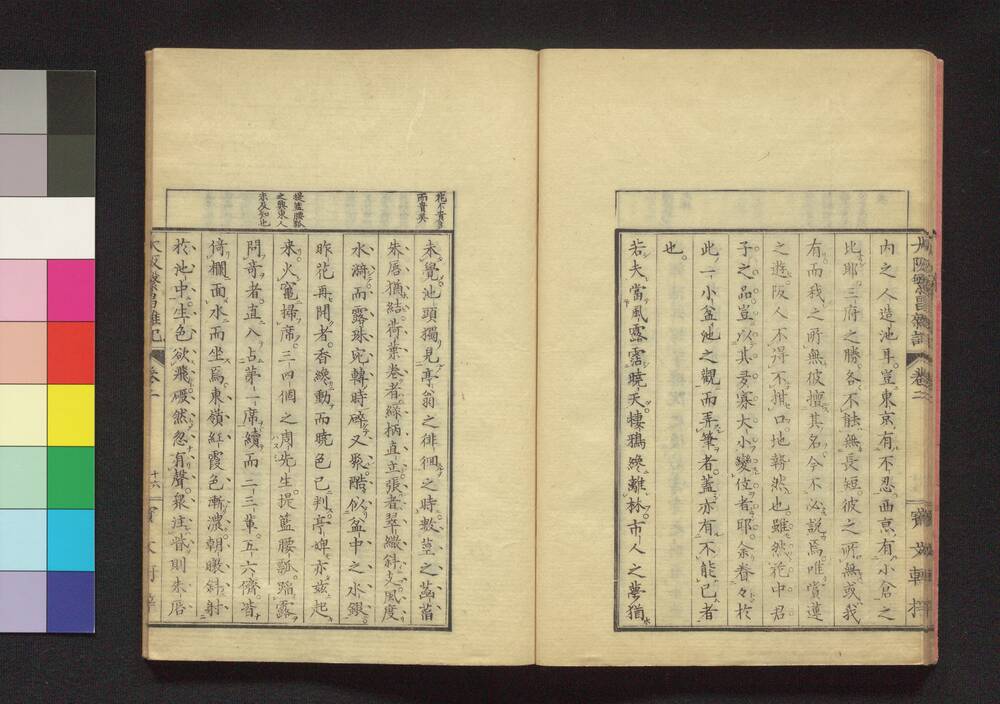 大阪繁昌雜記 卷之二
內之人造池耳。豈東京有不忍西京有小倉之
比耶。三府之勝各不能無長短。彼之所無或我
有。而我之所無彼擅其名。今不必說焉。唯賞蓮
之遊。阪人不得不掑口。地勢然也。雖然花中君
子之品豈以其多寡大小變位者耶。余眷々於
此一小盆池之觀而弄筆者。蓋亦有不能已者
也。
若夫當風露霑曉天。棲鴉纔離林。市人之夢猶
未覺。池頭獨見亭翁之徘徊之時。數莖之菡萏
朱唇猶結。荷葉卷者綠柄直立。張者翠繖斜支。風度
水漪而露珠宛轉時碎又聚。酷似盆中之水銀。
昨花再開者。香纔動而曉色已判。亭婢亦玆起
來。火竈掃席。三四個之周先生提籃腰瓢。蹈露
問奇者。直入占第一席。續而二三輩。五六儕。皆
倚欄面水而坐焉。東嶺鮮霞色漸濃。朝暾斜射
於池中。生色欲飛。礮然忽有聲。衆注眥則朱唇
花不貴多
而貴美
提籃腰瓢
之興東人
未及知也
大阪繁昌雜記
卷二
十六
寶文軒梓